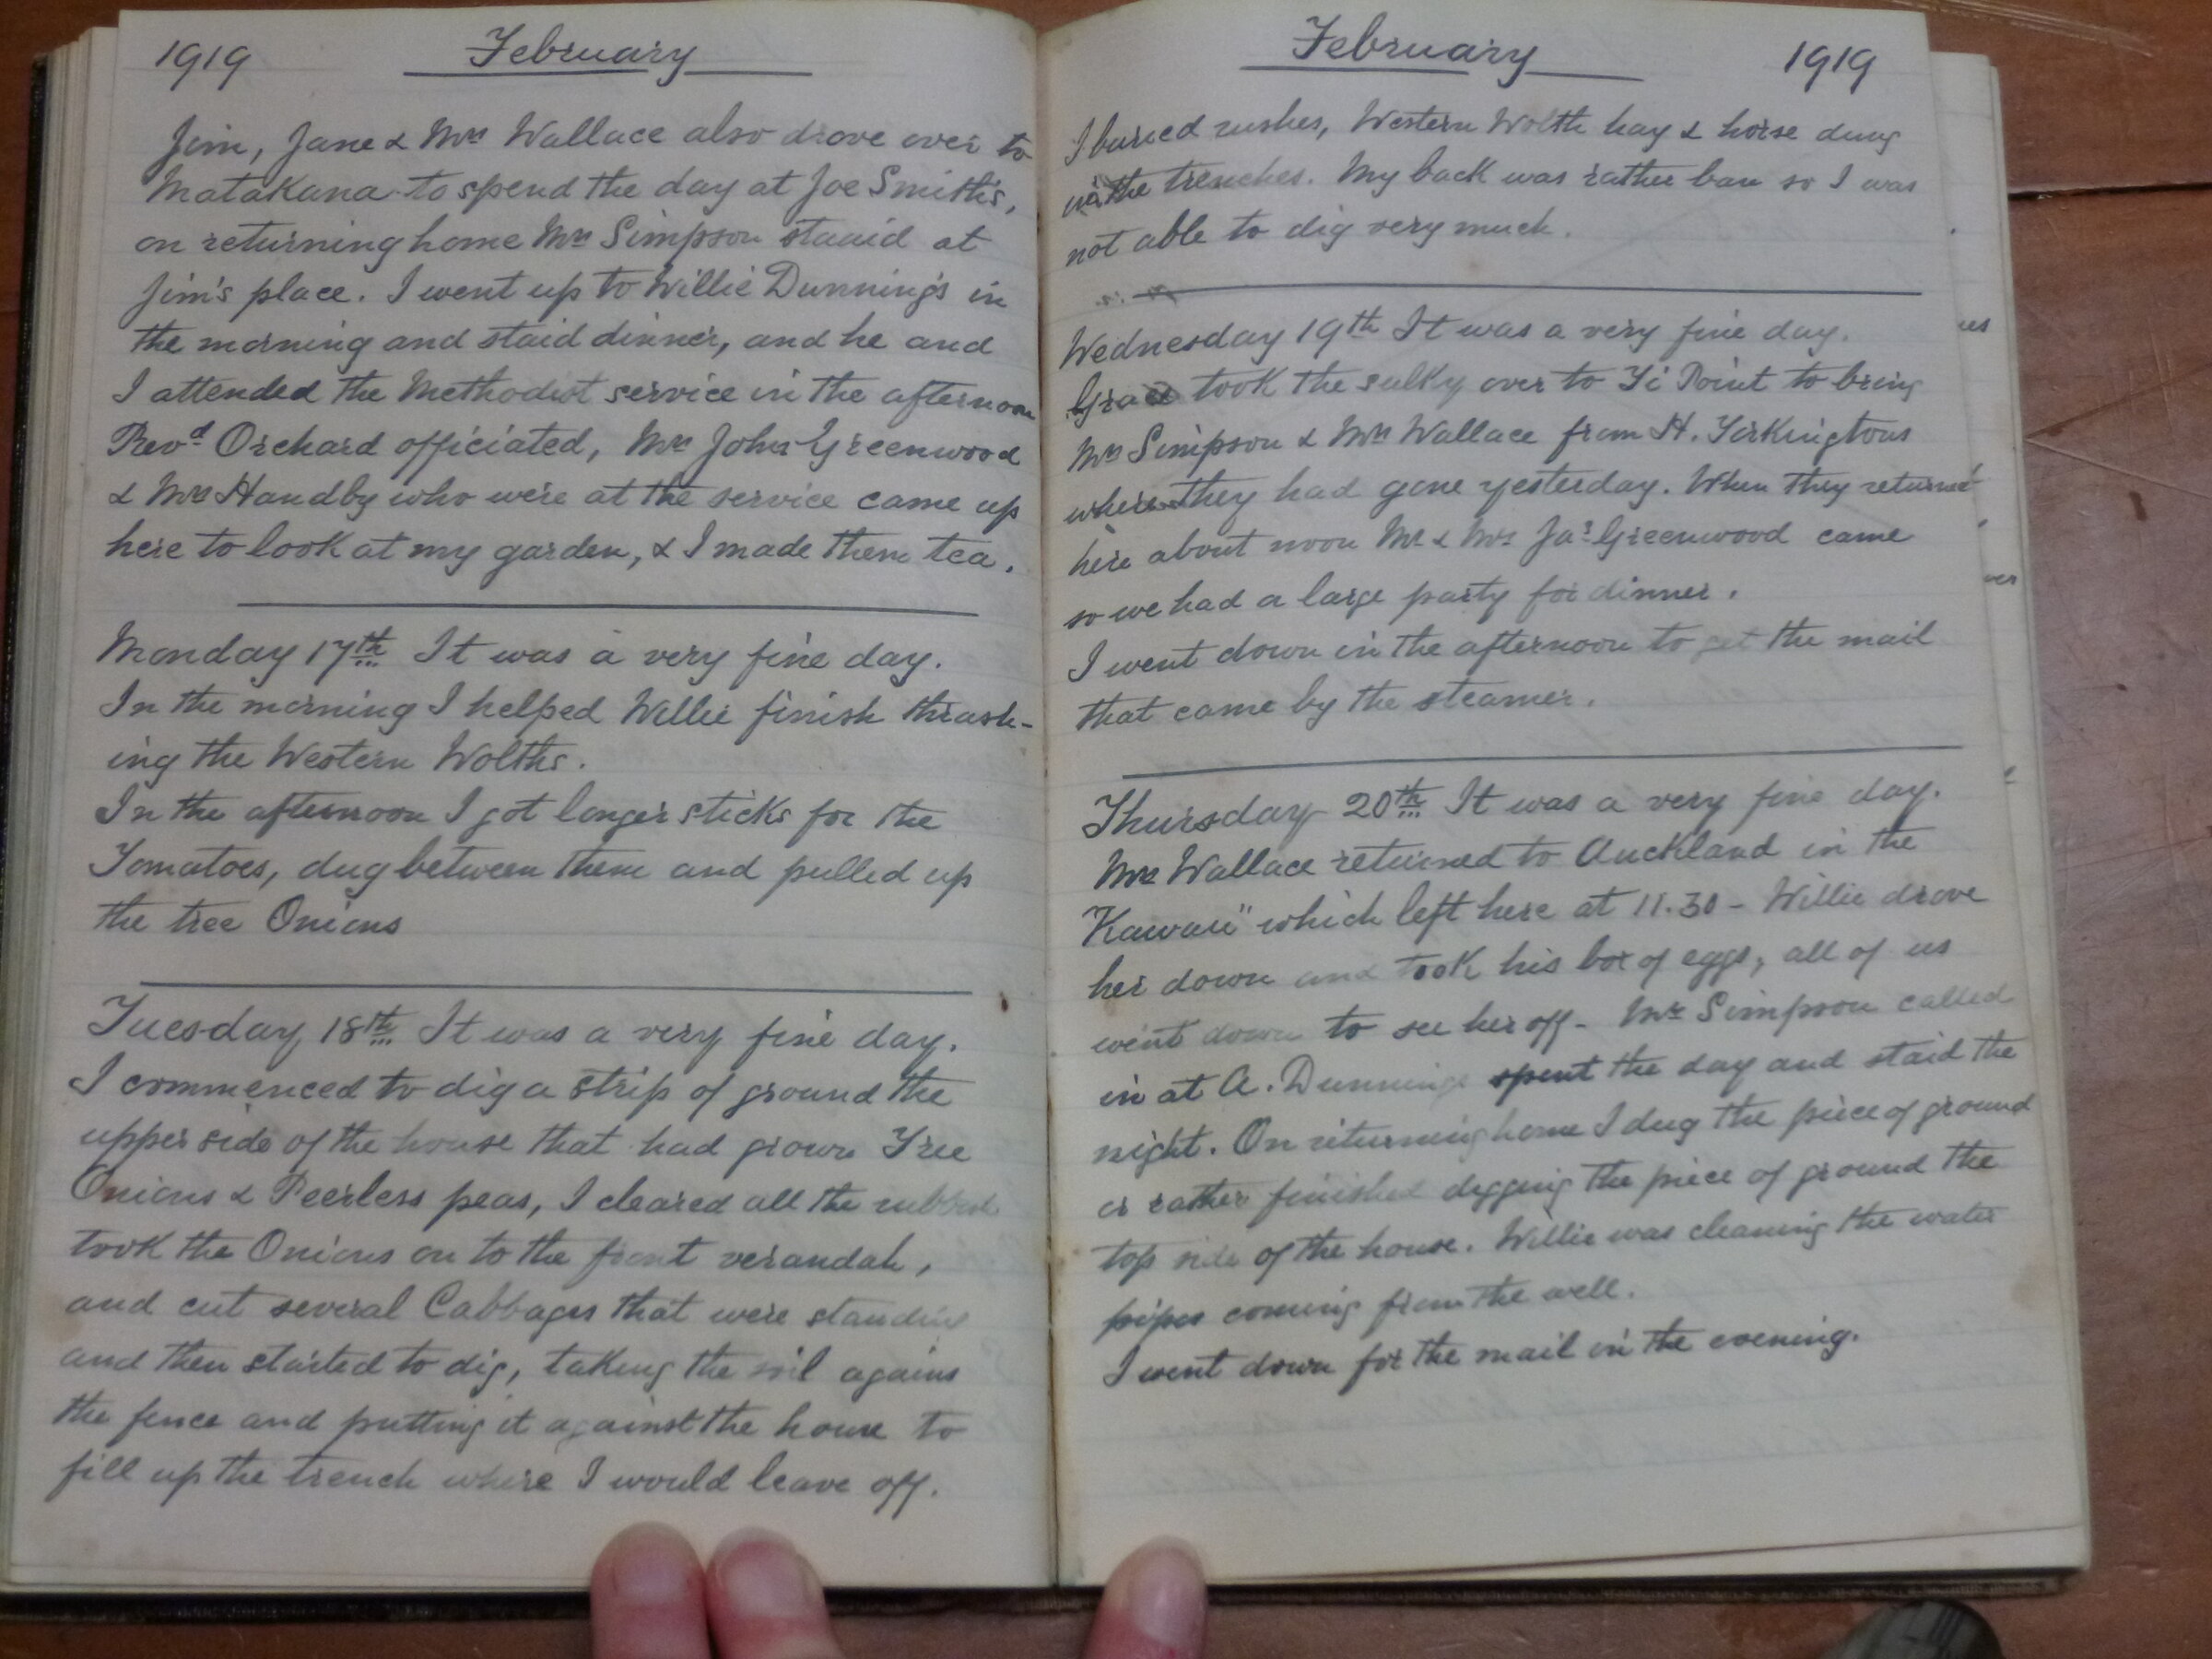 1919 February
Jim, Jane & Mrs Wallace also drove over to
Matakana to spend the day at Joe Smith's,
on returning home Mrs Simpson staaid at
Jim's place. I went up to Willie Dunning's in
the morning and staid dinner, and he and
I attended the Methodist service in the afternoon
Revd Orchard officiated, Mrs John Greenwood
& Mrs Handby who were at the service came up
here to look at my garden, & I made them tea.
Monday 17th It was a very fine day.
In the morning I helped Willie finish thrash-
ing the Western Wolths.
In the afternoon I got longer sticks for the
Tomatoes, dug between them and pulled up
the tree Onions
Tuesday 18th It was a very fine day.
I commenced to dig a strip of ground the
upper side of the house that had grown Tree
Onions & Peerless peas, I cleared all the rubbish
took the Onions on to the front verandah,
and cut several Cabbages that were standing
and then started to dig, taking the soil agains
the fence and putting it against the house to
fill up the trench where I would leave off.
February 1919
I buried rushes, Western Wolth hay & horse dung
in the trenches. My back was rather bau so I was
not able to dig very much.
Wednesday 19th It was a very fine day.
Grace took the sulky over to Ti Point to bring
Mrs Simpson & Mrs Wallace from H. Torkingtons
where they had gone yesterday. When they returned
here about noon Mr & Mrs Jas Greenwood came
so we had a large party for dinner.
I went down in the afternoon to get the mail
that came by the steamer.
Thursday 20th It was a very fine day.
Mrs Wallace returned to Auckland in the
"Kawau" which left here at 11.30 - Willie drove
her down and took his box of eggs, all of us
went down to see her off - Mrs Simpson called
in at A. Dunnings spent the day and staid the
night. On returning home I dug the piece of ground
or rather finished digging the piece of ground the
top side of the house. Willie was cleaning the water
pipes coming from the well.
I went down for the mail in the evening.